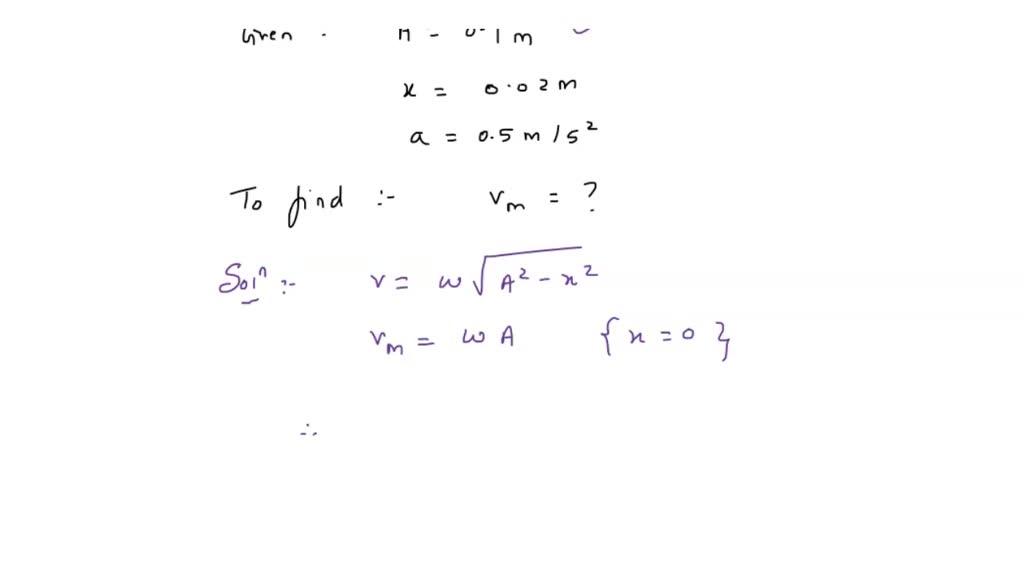 Given . A = 0.1 m
x = 0.02 m
a = 0.5 m/s²
To find :- vₘ = ?
Solⁿ :- v = ω√(A² - x²)
vₘ = ωA {x = 0}
∴